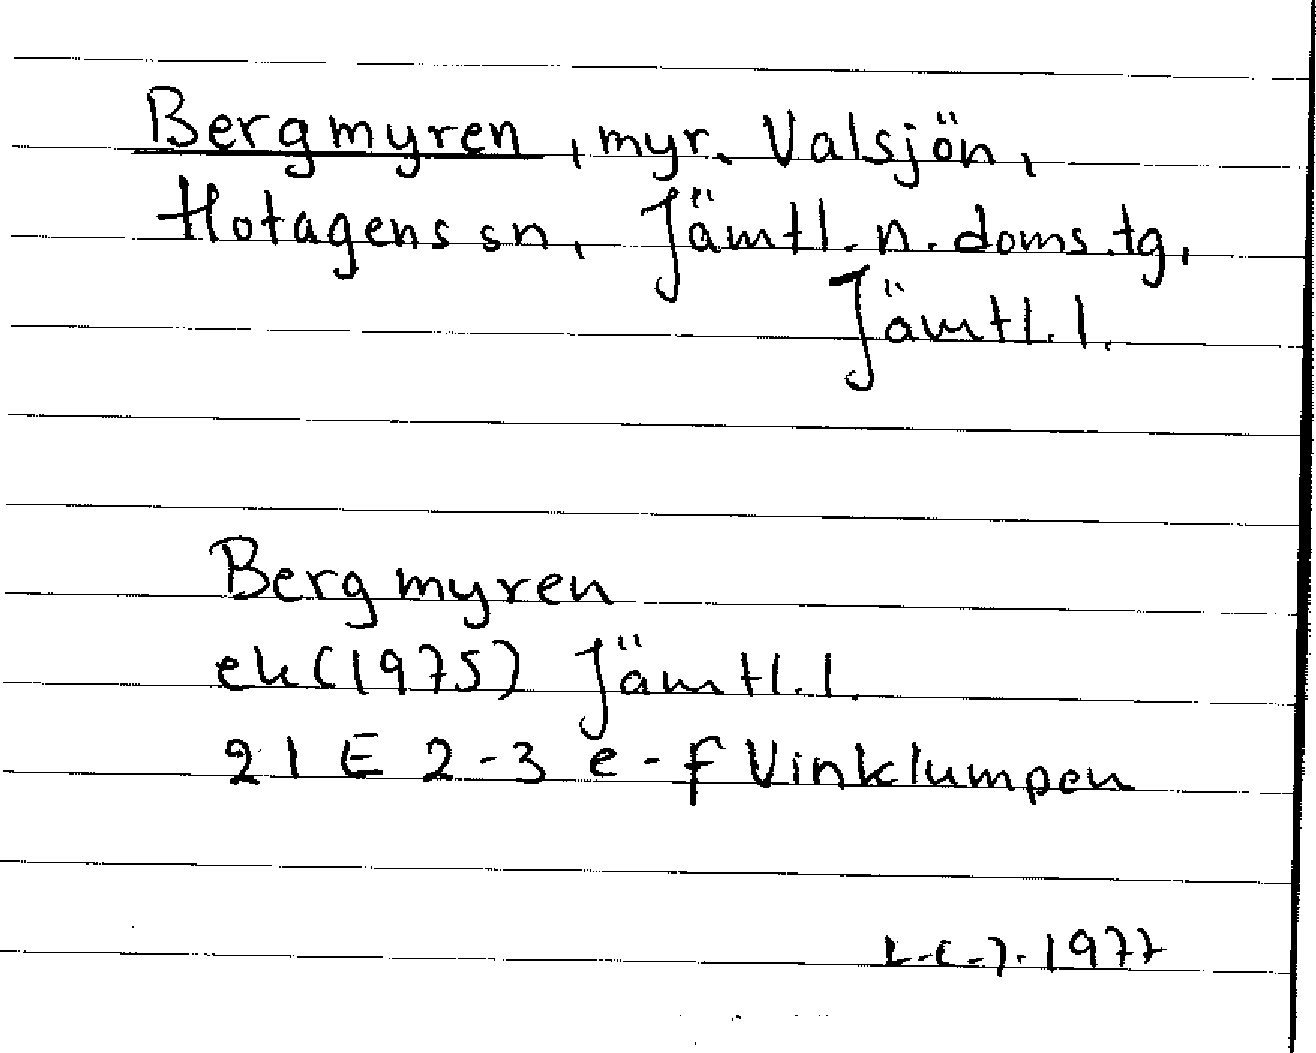 Bergmyren, myr. Valsjön,
Hotagens sn, Jämtl. n. doms.tg,
Jämtl. l.
Bergmyren
ek (1975) Jämtl. l.
21 E 2-3 e-f Vinklumpen
1977